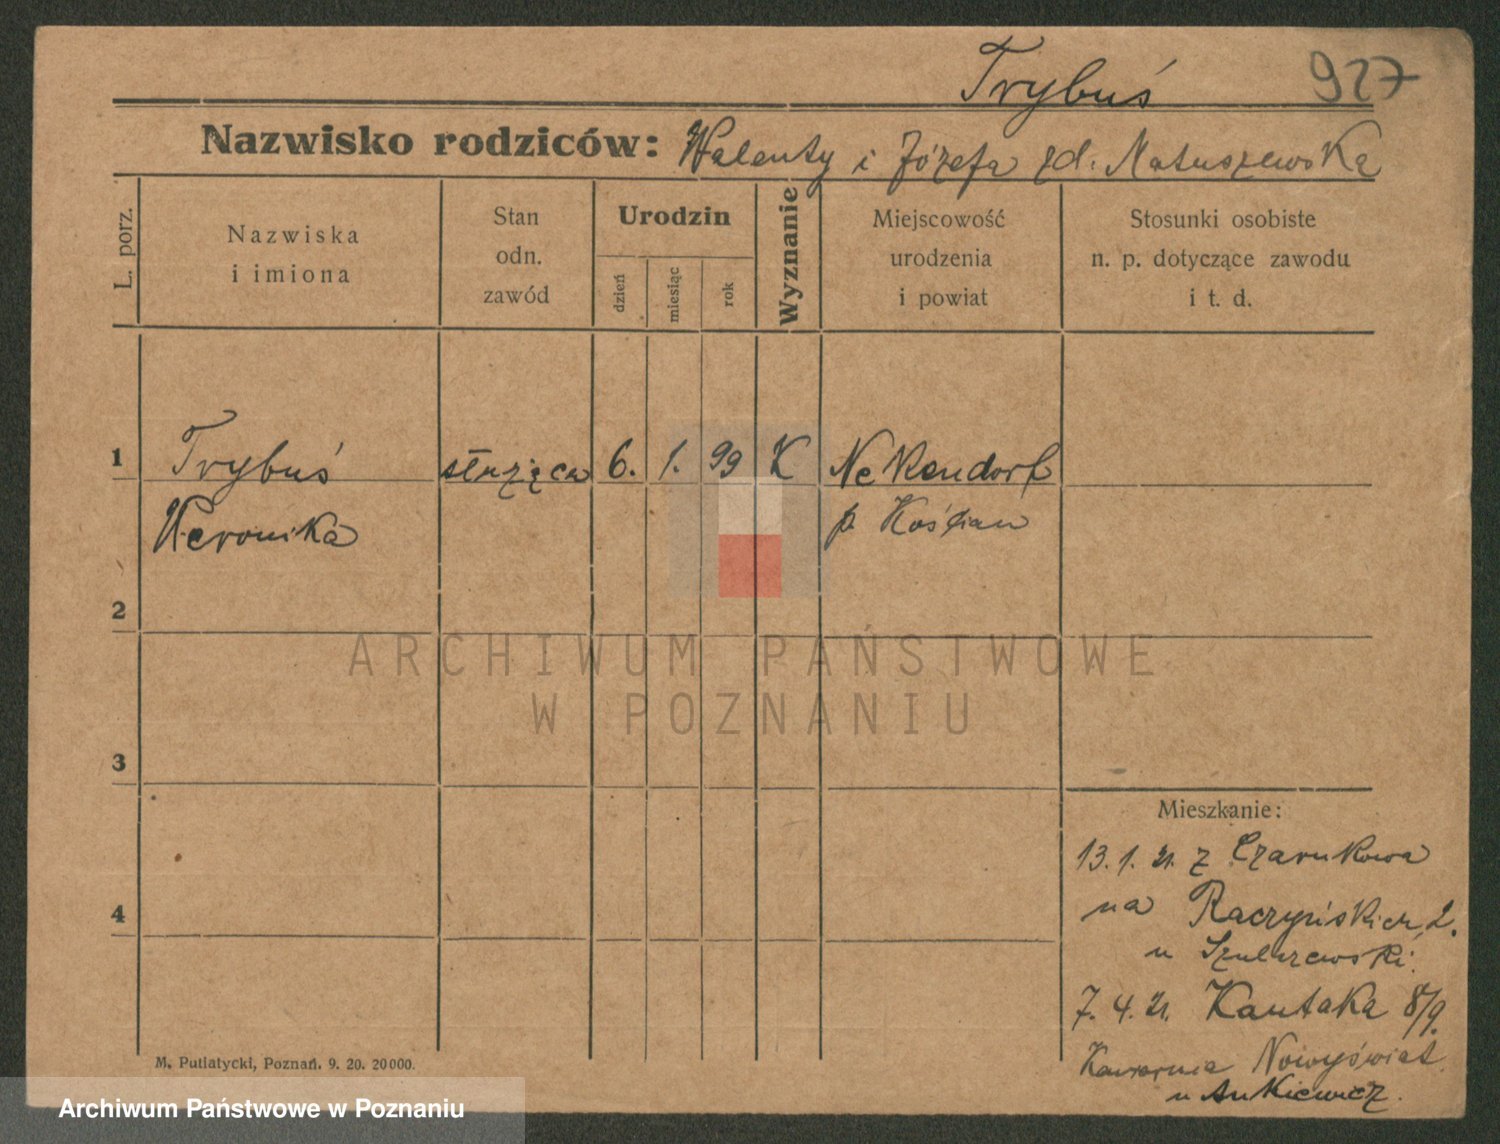 Trybuś 927
Nazwisko rodziców: Walenty i Józefa zd. Matuszewska
L. porz.
Nazwiska
i imiona
Stan
odn.
zawód
Urodzin
dzień
miesiąc
rok
Wyznanie
Miejscowość
urodzenia
i powiat
Stosunki osobiste
n. p. dotyczące zawodu
i t. d.
1 Trybuś służąca 6. 1. 99 K Nekendorf
Weronika p. Kościan
2
ARCHIWUM PAŃSTWOWE
W POZNANIU
3
Mieszkanie:
13. 1. 21. z Czarnkowa
4
na Raczyńskich 2.
u
7. 4. 21. Kantaka 8/9.
Kawarnia Nowyświat
u Ankiewicz.
M. Putiatycki, Poznań. 9. 20. 20000.
Archiwum Państwowe w Poznaniu